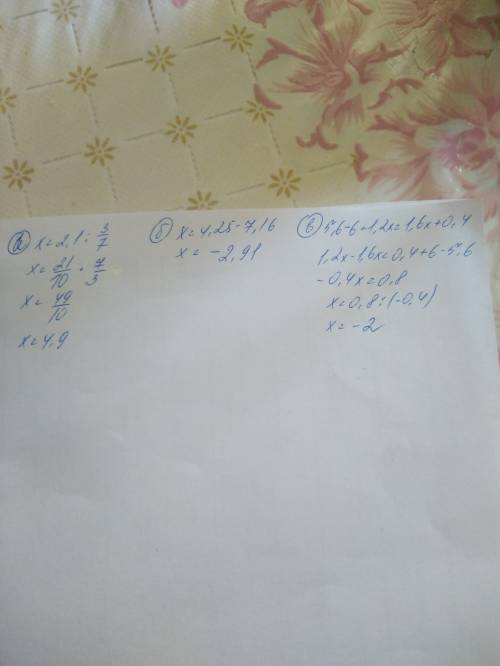 а) x=2,1:3/7
x=21/10·7/3
x=49/10
x=4,9
б) x=4,25-7,16
x=-2,91
в) 5,6-6+1,2x=1,6x+0,4
1,2x-1,6x=0,4+6-5,6
-0,4x=0,8
x=0,8:(-0,4)
x=-2